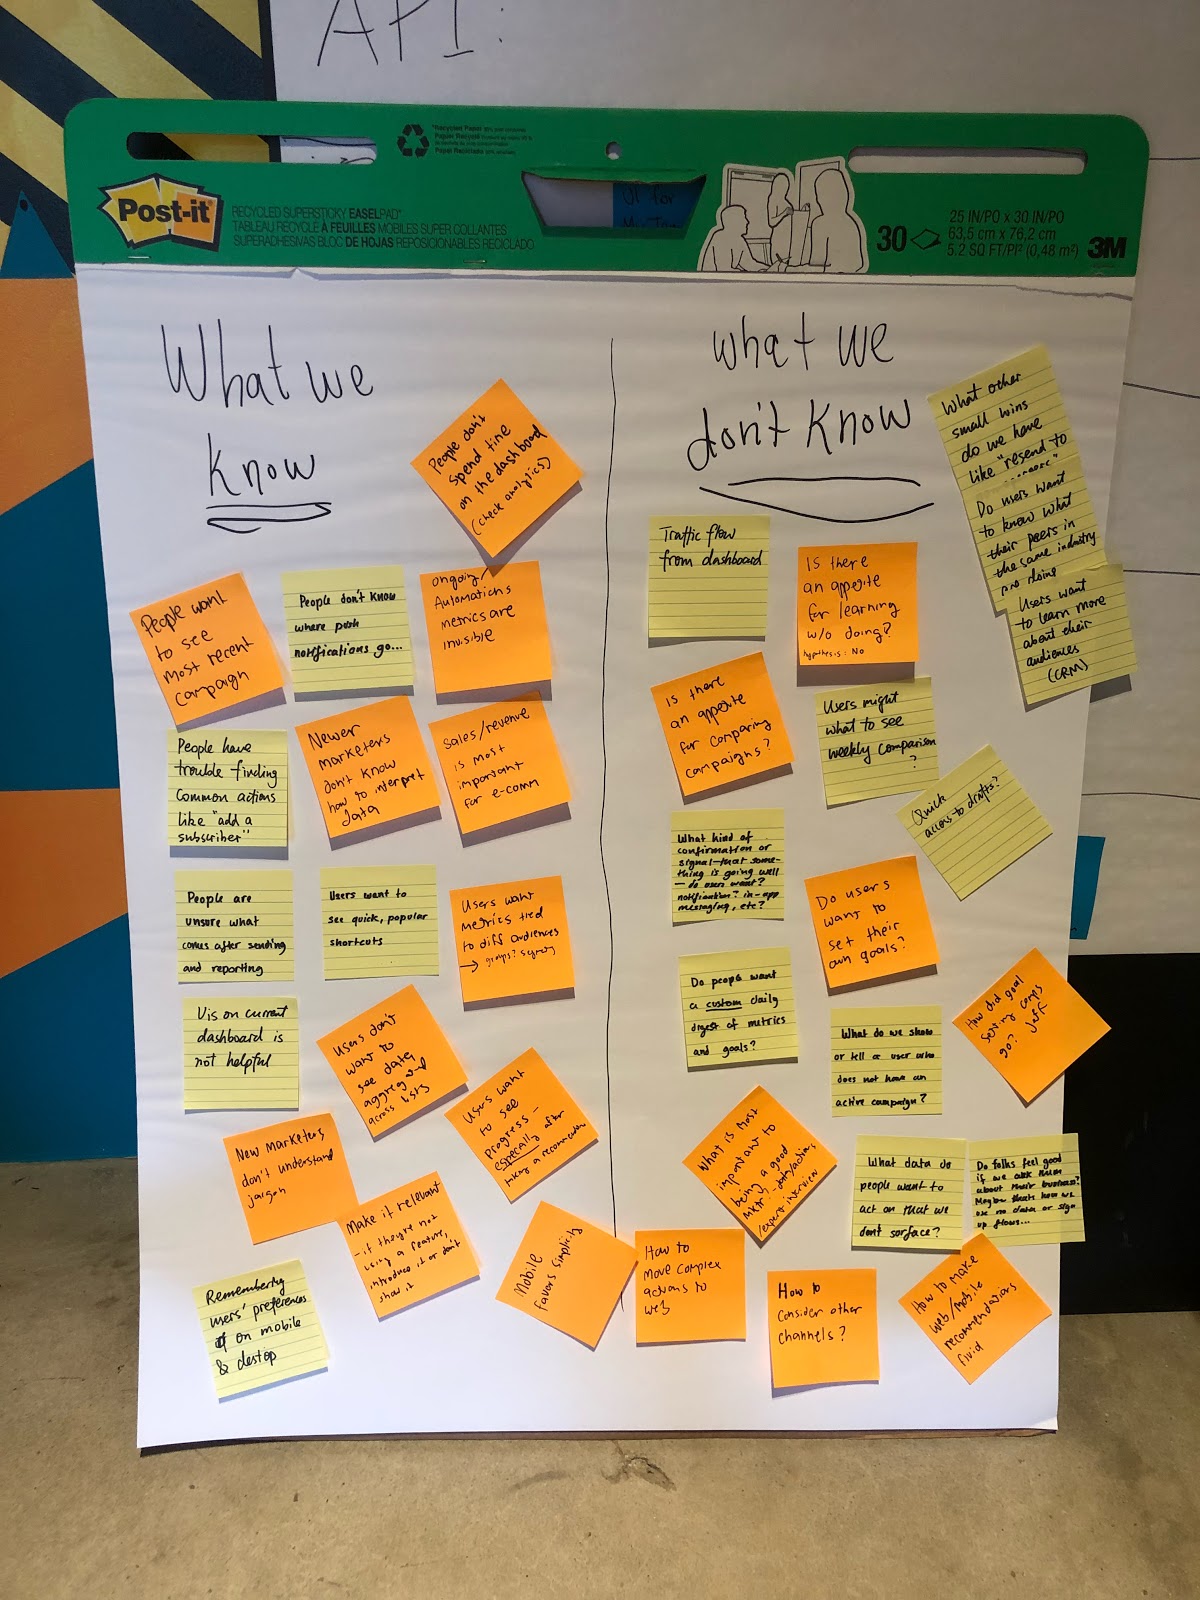 API:
Post-it
RECYCLED SUPERSTICKY EASELPAD
TABLEAU RECYCLÉ À FEUILLES MOBILES SUPER COLLANTES
SUPERADHESIVAS BLOC DE HOJAS REPOSICIONABLES RECICLADO
UI for
30
25 IN/PO x 30 IN/PO
63,5 cm x 76,2 cm
5.2 SQ FT/PI² (0,48 m²)
3M
What we
know
People don't
spend time
on the dashboard
(check analytics)
People want
to see
most recent
campaign
People don't know
where push
notifications go...
ongoing/
Automations
metrics are
invisible
People have
trouble finding
common actions
like "add a
subscriber"
Newer
marketers
don't know
how to interpret
data
Sales/revenue
is most
important
for e-comm
People are
unsure what
comes after sending
and reporting
Users want to
see quick, popular
shortcuts
Users want
metrics tied
to diff audiences
→ groups?
Vis on current
dashboard is
not helpful
Users don't
want to
see data
aggregated
across lists
Users want
to see
progress –
especially after
taking a recommendation
New marketers
don't understand
jargon
Make it relevant
– if they're not
using a feature,
introduce it or don't
show it
Mobile
favors simplicity
Remembering
users' preferences
on mobile
& destop
what we
don't know
What other
small wins
do we have
like "resend to
Do users want
to know what
their peers in
the same industry
are doing
Users want
to learn more
about their
audiences
(CRM)
Traffic flow
from dashboard
Is there
an appetite
for learning
w/o doing?
hypothesis: No
Is there
an appetite
for comparing
campaigns?
Users might
what to see
weekly comparison
?
Quick
access to drafts?
What kind of
confirmation or
signal that some-
thing is going well
– do users want?
notification? in-app
messaging, etc?
Do users
want to
set their
own goals?
Do people want
a custom daily
digest of metrics
and goals?
What do we show
or tell a user who
does not have an
active campaign?
How did goal
setting comps
go? Jeff
What is most
important to
being a good
mktr; data/actions
/expert interview
What data do
people want to
act on that we
don't surface?
Do folks feel good
if we ask them
about their business?
Maybe that's how we
use no data or sign
up flows...
How to
move complex
actions to
web
How to
consider other
channels?
How to make
web/mobile
recommendations
fluid